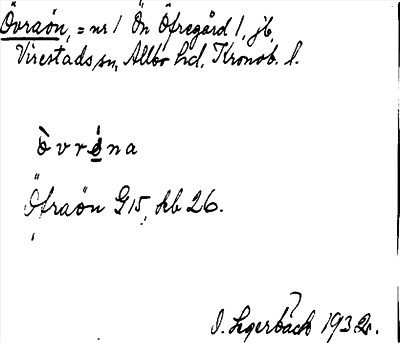 Övraön, = nr 1 Ön Öfregård 1, jb,
Virestads sn, Allbo hd, Kronob. l.
òvrǿna
Öfraön G 15, kb 26.
O. Lagerbäck 1932.